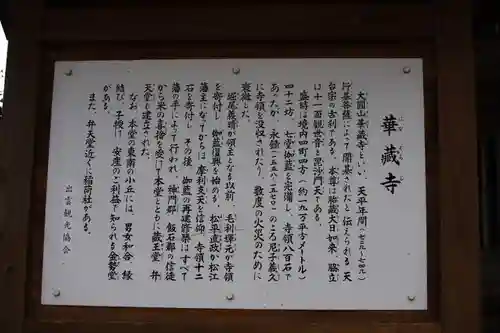 華藏寺
けぞうじ
大圓山華藏寺といい、天平年間(七二九~七四九)
行基菩薩によって開基されたと伝えられる 天
台宗の古刹である。本尊は胎蔵大日如来、脇立
は十一面観世音と毘沙門天である。
盛時は境内四町四方(約一九万平方メートル)
四十二坊、七堂伽藍を完備し、寺領八百石で
あったが、永禄(一五五八~一五七〇)のころ尼子義久
に寺領を没収されたり、数度の火災のために
衰微した。
堀尾義晴が領主となる以前、毛利輝元が寺領
を寄付し 伽藍復興を始める。松平直政が松江
藩主になってからは 摩利支天を信仰、寺領十二
石を寄付し その後 伽藍の再建修築はすべて
藩の手によって行われ、神門郡 飯石郡の信徒
から米の喜捨を受けて本堂とともに蔵王堂 弁
天堂も建立された。
なお、本堂の東南の小丘には、男女和合、縁
結び、子授け、安産のご利益で知られる金勢堂
がある。
また、弁天堂近くに稲荷社がある。
出雲観光協会